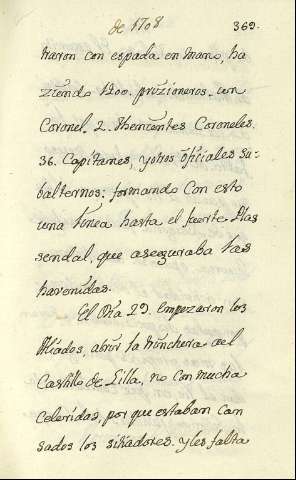 de 1708
369.
traron con espada en mano, ha
ziendo 1200. prizioneros, un
Coronel. 2. thenientes Coroneles.
36. Capitanes, y otros oficiales su-
balternos: formando con esto
una linea hasta el fuerte Mas
sendal, que aseguraba las
havenidas.
El Dia 29. empezaron los
Aliados, abrir la trinchera al
Castillo de Lilla, no con mucha
celeridas, por que estaban can
sados los sitiadores. y les falta